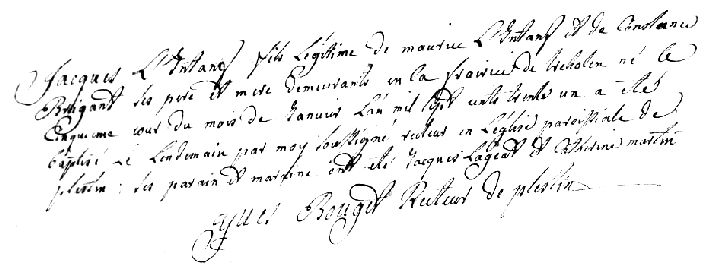 Jacques L'Intanf fils légitime de maurice L'Intanf et de Constance
Brigant ses pere et mere demeurants en la frairie de trebolen né le
Cinquieme jour du mois de Janvier L'an mil sept cents trente un a eté
baptisé Le Lendemain par moy soussigné recteur en L'église paroissiale de
plestin : ses parain et maraine ont eté Jacques Lageat et Catherine martin
yves Bouget Recteur de plestin